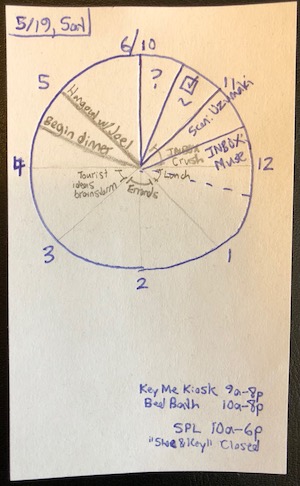 5/19, Sat
6/10
5
?
☑
2
11
Scan: Uzumaki
Hangout w/ Joel
Begin dinner
INBOX:
Muse
INBOX
Crush
4
12
Tourist
ideas
brainstorm
Lunch
Errands
3
1
2
Key Me Kiosk 9a-8p
Bed Bath 10a-9p
SPL 10a-6p
"Shoe & Key" Closed